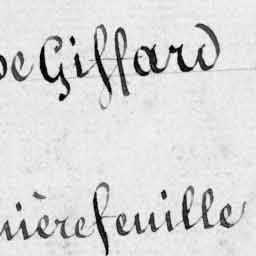 de Giffard
nière feuille